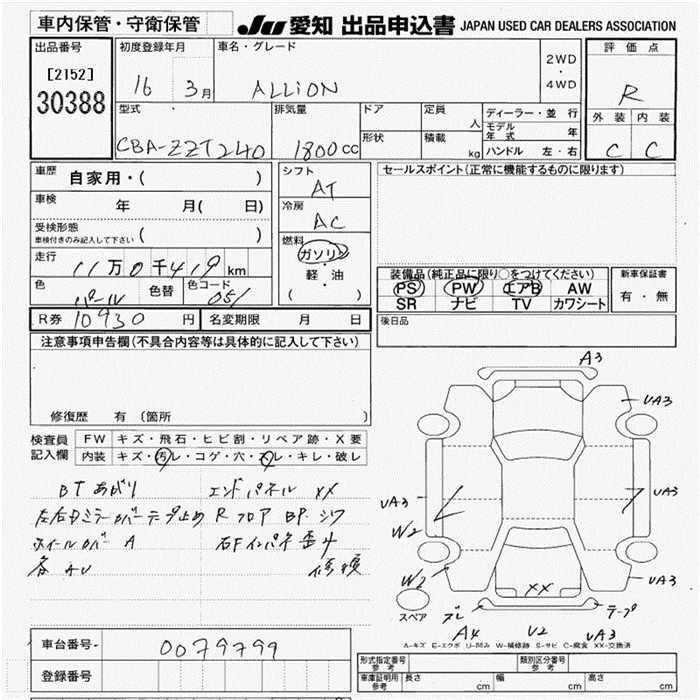 車内保管・守衛保管
JU 愛知 出品申込書 JAPAN USED CAR DEALERS ASSOCIATION
出品番号
[2152]
30388
初度登録年月
16 3月
車名・グレード
ALLION
2WD
・
4WD
評価点
R
外装 内装
C C
型式
CBA-ZZT240
排気量
1800cc
ドア
形状
定員
人
積載
kg
ディーラー・並行
モデル年式 年
ハンドル 左・右
車歴
自家用・( )
車検
年 月( 日)
受検形態
車検付きのみ記入して下さい ( )
走行
11万0千419km
色
パール
色替
色コード
051
シフト
AT
冷房
AC
燃料
ガソリン
・
軽・油
( )
セールスポイント(正常に機能するものに限ります)
装備品(純正品に限り○をつけてください)
PS PW エアB AW
SR ナビ TV カワシート
新車保証書
有・無
R券 10930 円
名変期限 月 日
後日品
注意事項申告欄(不具合内容等は具体的に記入して下さい)
修復歴 有 (箇所 )
検査員
記入欄
FW キズ・飛石・ヒビ割・リペア跡・X要
内装 キズ・汚レ・コゲ・穴・スレ・キレ・破レ
BTあがり エンドパネル XX
左右Dミラーカバーテープ止め RフロアBPシワ
ホイールカバーA 右Fインパネ歪み
各AU 修複
A3
UA3
UA3
UA3
W2
W2
UA3
XX
スペア
ズレ
テープ
A4 U2 UA3
A-キズ E-エクボ U-凹み W-補修跡 S-サビ C-腐食 XX-交換済
車台番号
0079799
登録番号
形式指定番号
参考
類別区分番号
参考
車庫証明用
参考
長さ cm
幅 cm
高さ cm